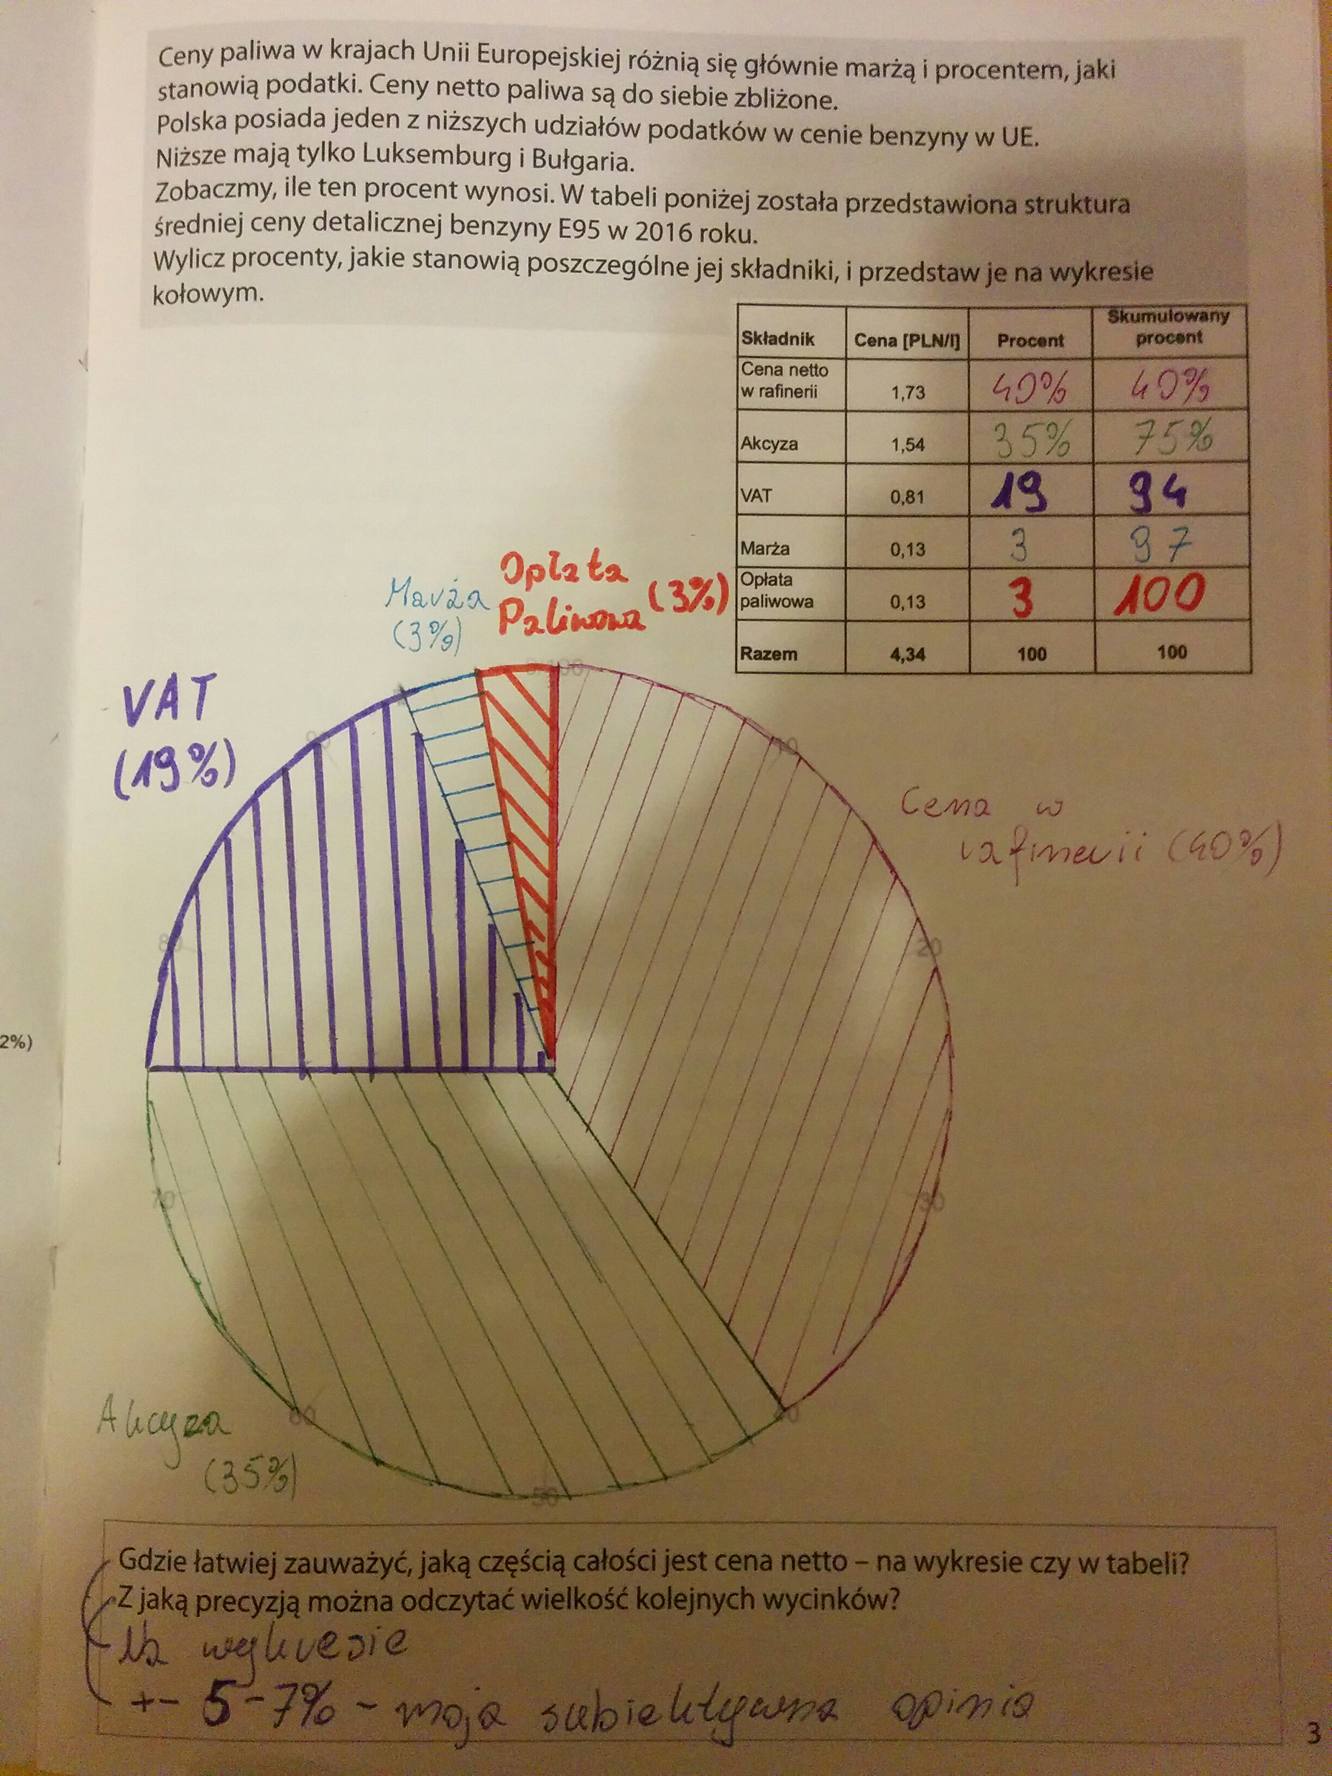 Ceny paliwa w krajach Unii Europejskiej różnią się głównie marżą i procentem, jaki
stanowią podatki. Ceny netto paliwa są do siebie zbliżone.
Polska posiada jeden z niższych udziałów podatków w cenie benzyny w UE.
Niższe mają tylko Luksemburg i Bułgaria.
Zobaczmy, ile ten procent wynosi. W tabeli poniżej została przedstawiona struktura
średniej ceny detalicznej benzyny E95 w 2016 roku.
Wylicz procenty, jakie stanowią poszczególne jej składniki, i przedstaw je na wykresie
kołowym.
Składnik Cena [PLN/l] Procent Skumulowany procent
Cena netto w rafinerii 1,73 40% 40%
Akcyza 1,54 35% 75%
VAT 0,81 19 94
Marża 0,13 3 97
Opłata paliwowa 0,13 3 100
Razem 4,34 100 100
Marża
(3%)
Opłata
Paliwowa (3%)
VAT
(19%)
0 100
10
90
Cena w
rafinerii (40%)
80
20
2%)
70
30
Akcyza
(35%)
60
40
50
Gdzie łatwiej zauważyć, jaką częścią całości jest cena netto – na wykresie czy w tabeli?
Z jaką precyzją można odczytać wielkość kolejnych wycinków?
Na wykresie
+- 5-7% - moja subiektywna opinia
3